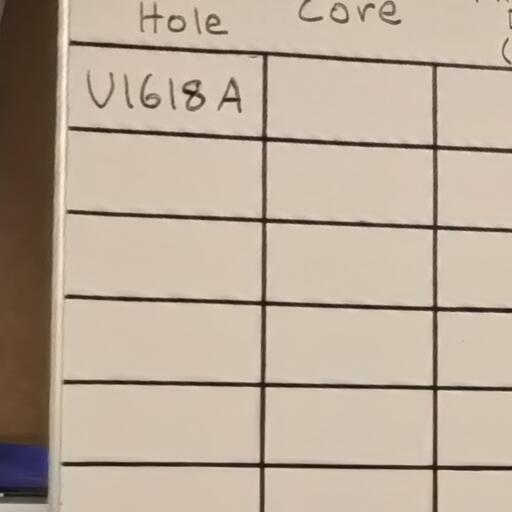 Hole Core
U1618A